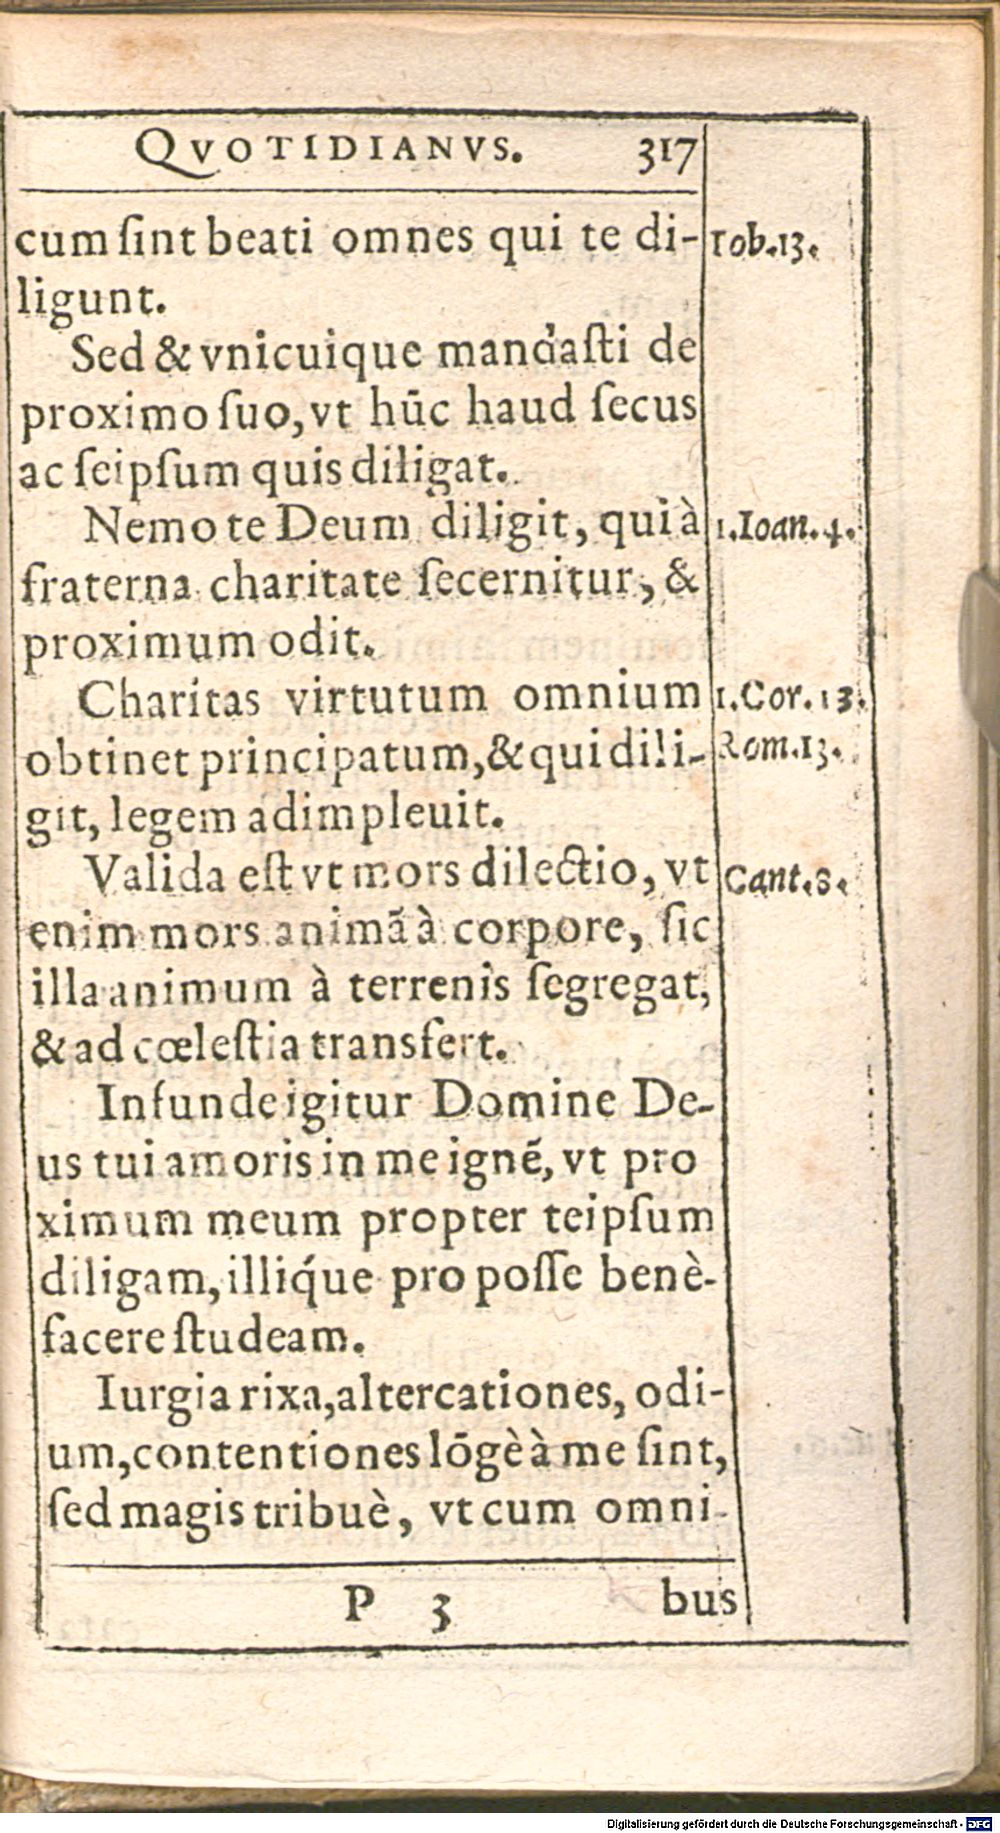 QVOTIDIANVS. 317
cum ſint beati omnes qui te di- Tob.13.
ligunt.
Sed & vnicuique mandaſti de
proximo ſuo, vt hūc haud ſecus
ac ſeipſum quis diligat.
Nemo te Deum diligit, qui à 1.Ioan.4.
fraterna charitate ſecernitur, &
proximum odit.
Charitas virtutum omnium 1.Cor.13.
obtinet principatum, & qui dili- Rom.13.
git, legem adimpleuit.
Valida eſt vt mors dilectio, vt Cant.8.
enim mors animā à corpore, ſic
illa animum à terrenis ſegregat,
& ad cœleſtia transfert.
Infunde igitur Domine De-
us tui amoris in me ignē, vt pro
ximum meum propter teipſum
diligam, illiq́ue pro poſſe benè-
facere ſtudeam.
Iurgia rixa, altercationes, odi-
um, contentiones lōgè à me ſint,
ſed magis tribuè, vt cum omni-
P 3 bus
Digitalisierung gefördert durch die Deutsche Forschungsgemeinschaft - DFG